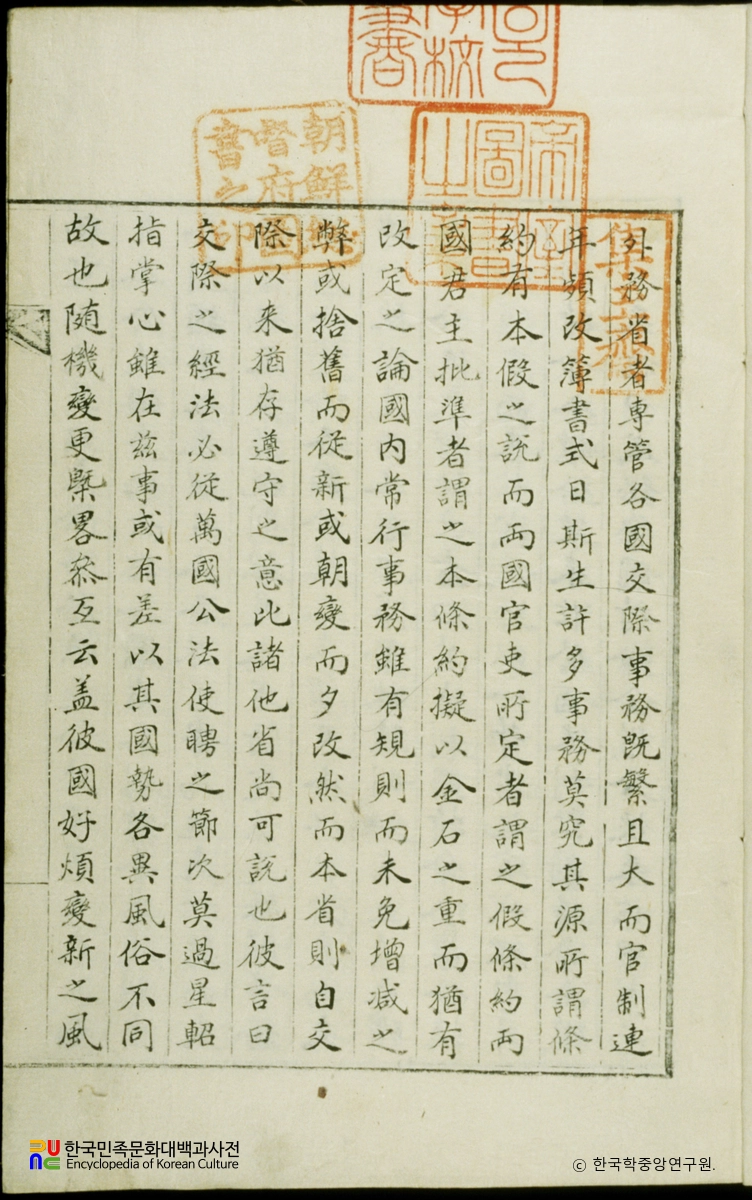 外務省者專管各國交際事務旣繁且大而官制連
年頻改簿書式日斯生許多事務莫究其源所謂條
約有本假之說而兩國官吏所定者謂之假條約兩
國君主批準者謂之本條約擬以金石之重而猶有
改定之論國內常行事務雖有規則而未免增减之
弊或捨舊而從新或朝變而夕改然而本省則自交
際以来猶存遵守之意此諸他省尙可說也彼言曰
交際之經法必從萬國公法使聘之節次莫過星軺
指掌心雖在玆事或有差以其國勢各異風俗不同
故也随機變更槩畧叅互云盖彼國好煩變新之風
朝鮮總
督府圖
書之印
帝室
圖書
之章
集玉齋
한국민족문화대백과사전
Encyclopedia of Korean Culture
ⓒ 한국학중앙연구원.